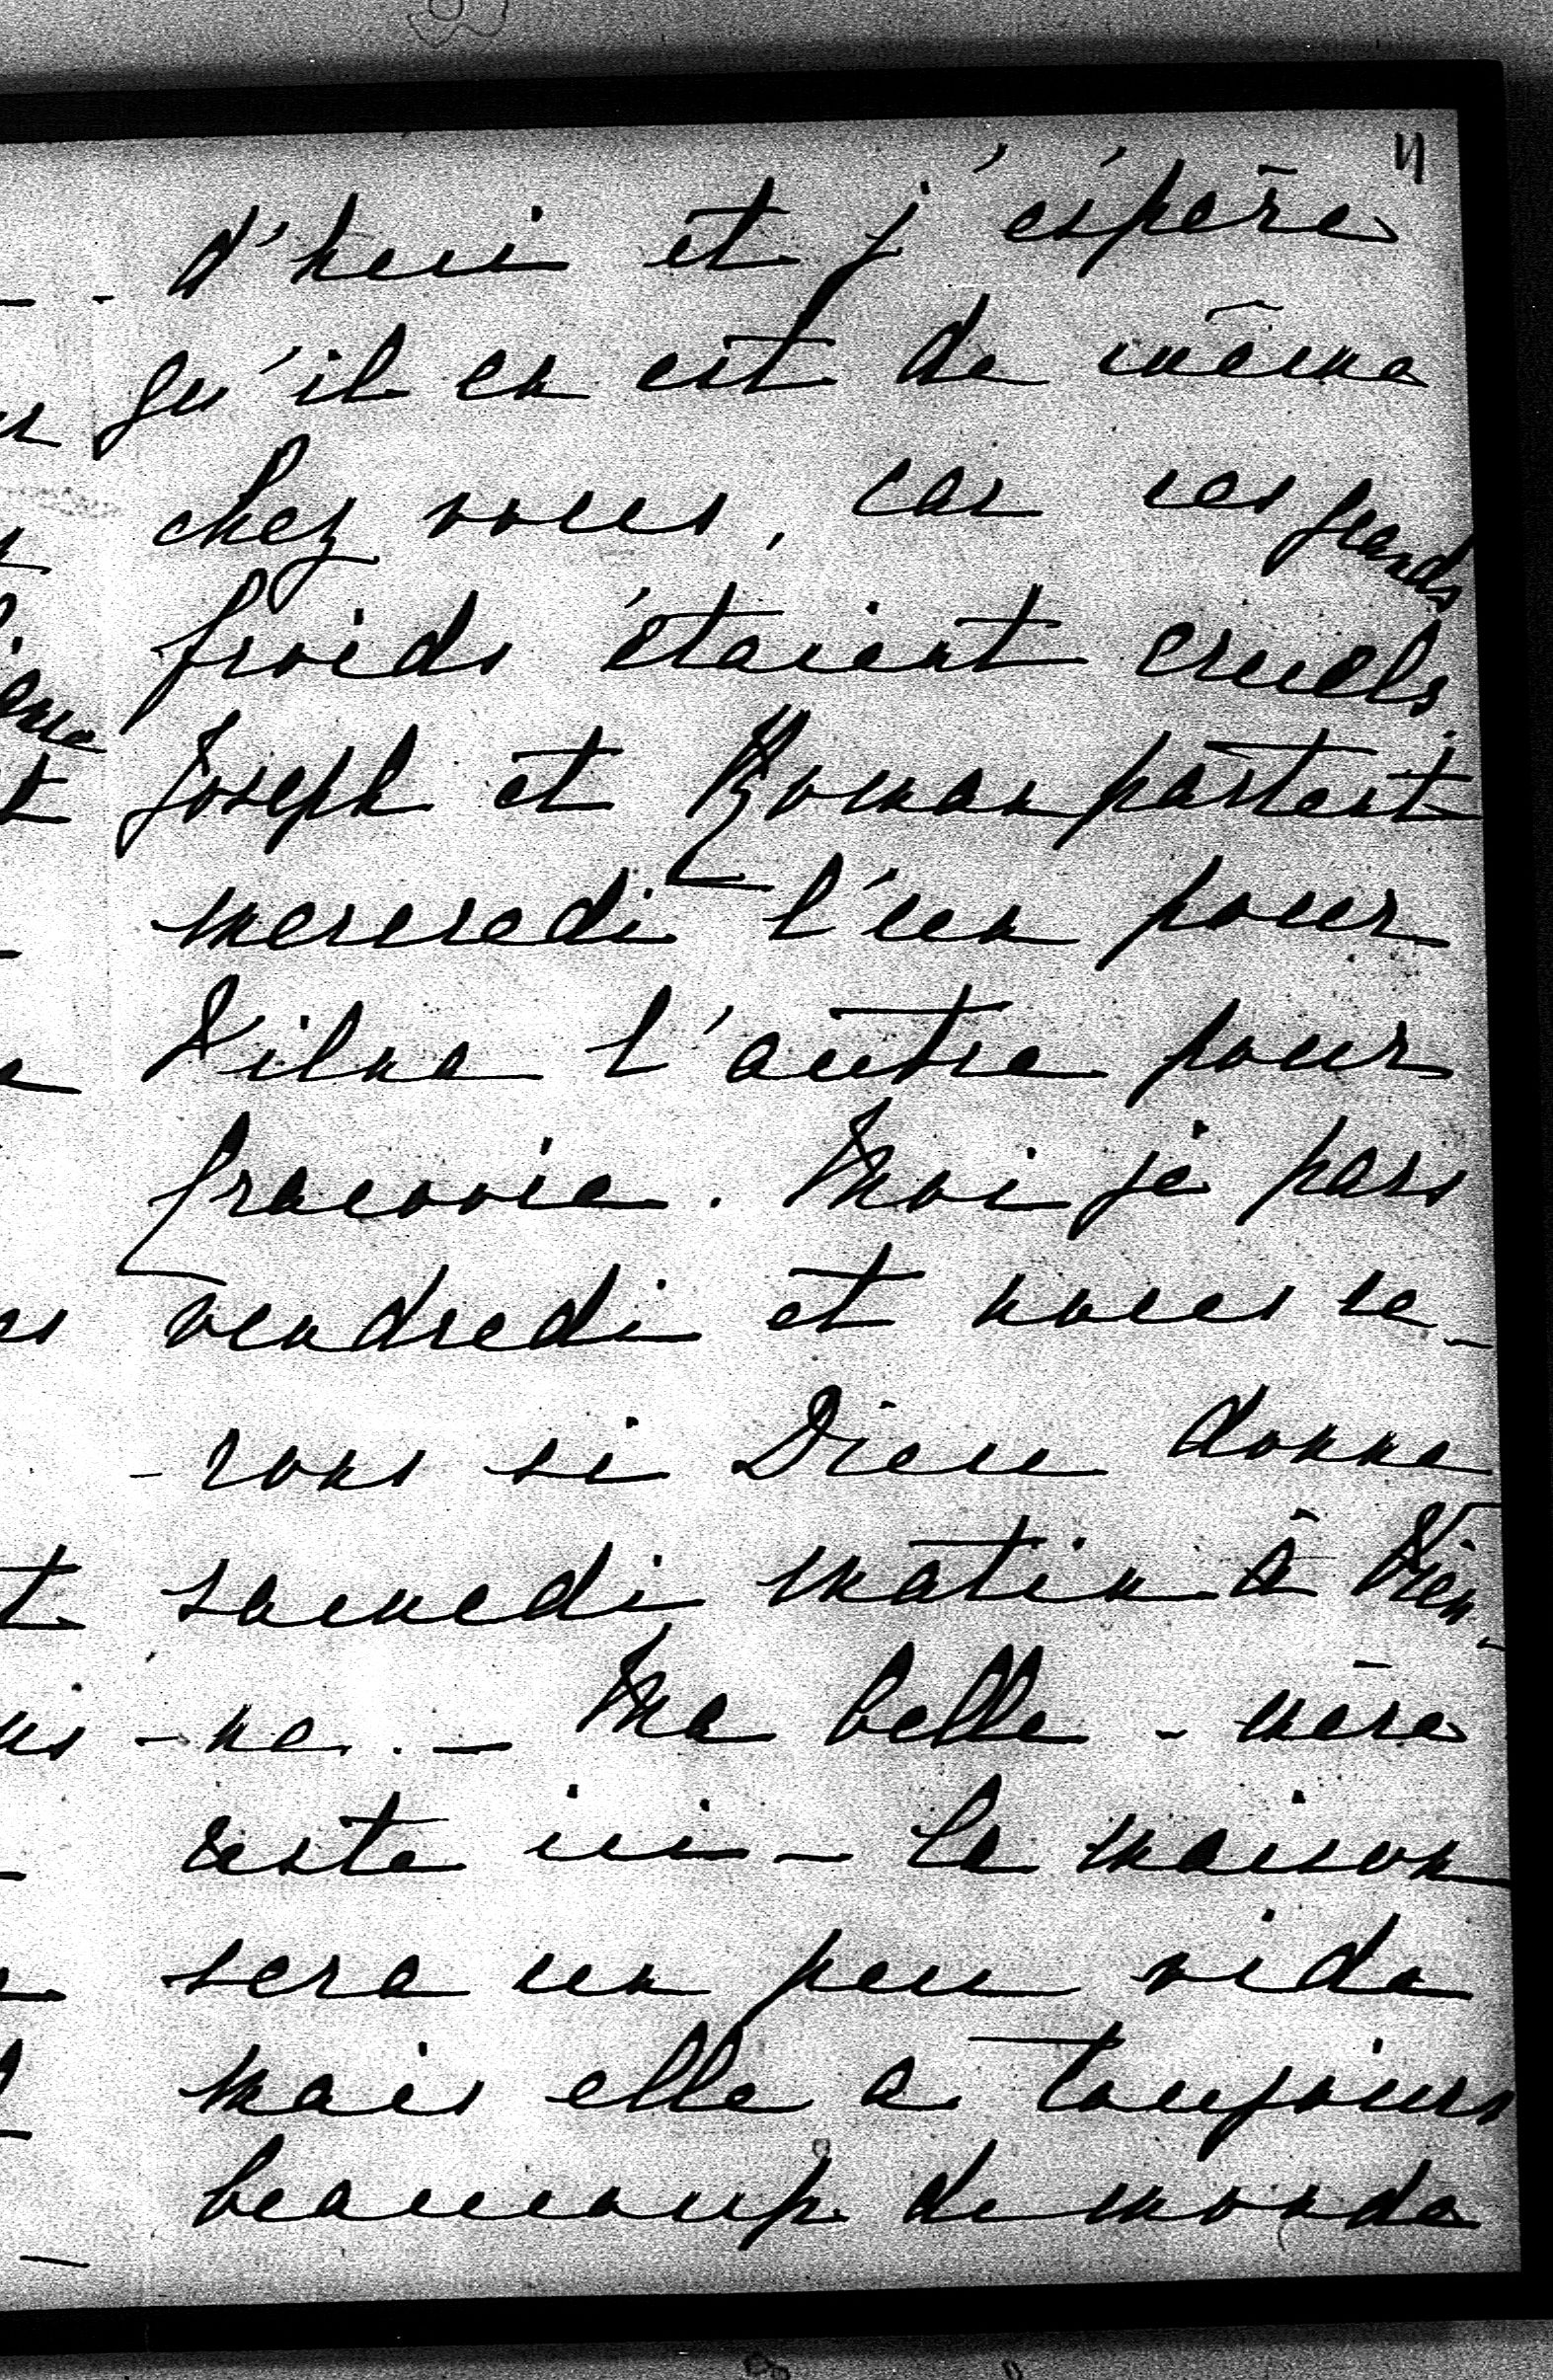 - d'hui et j'espère
qu'il en est de même
chez vous, car ces grands
froids étaient cruels.
Joseph et Roman partent
mercredi l'un pour
Vilna l'autre pour
Cracovie. Moi je pars
vendredi et nous se-
- rons si Dieu donne
samedi matin à Vien-
- ne. - Ma belle-mère
reste ici - la maison
sera un peu vide
mais elle a toujours
beaucoup de monde